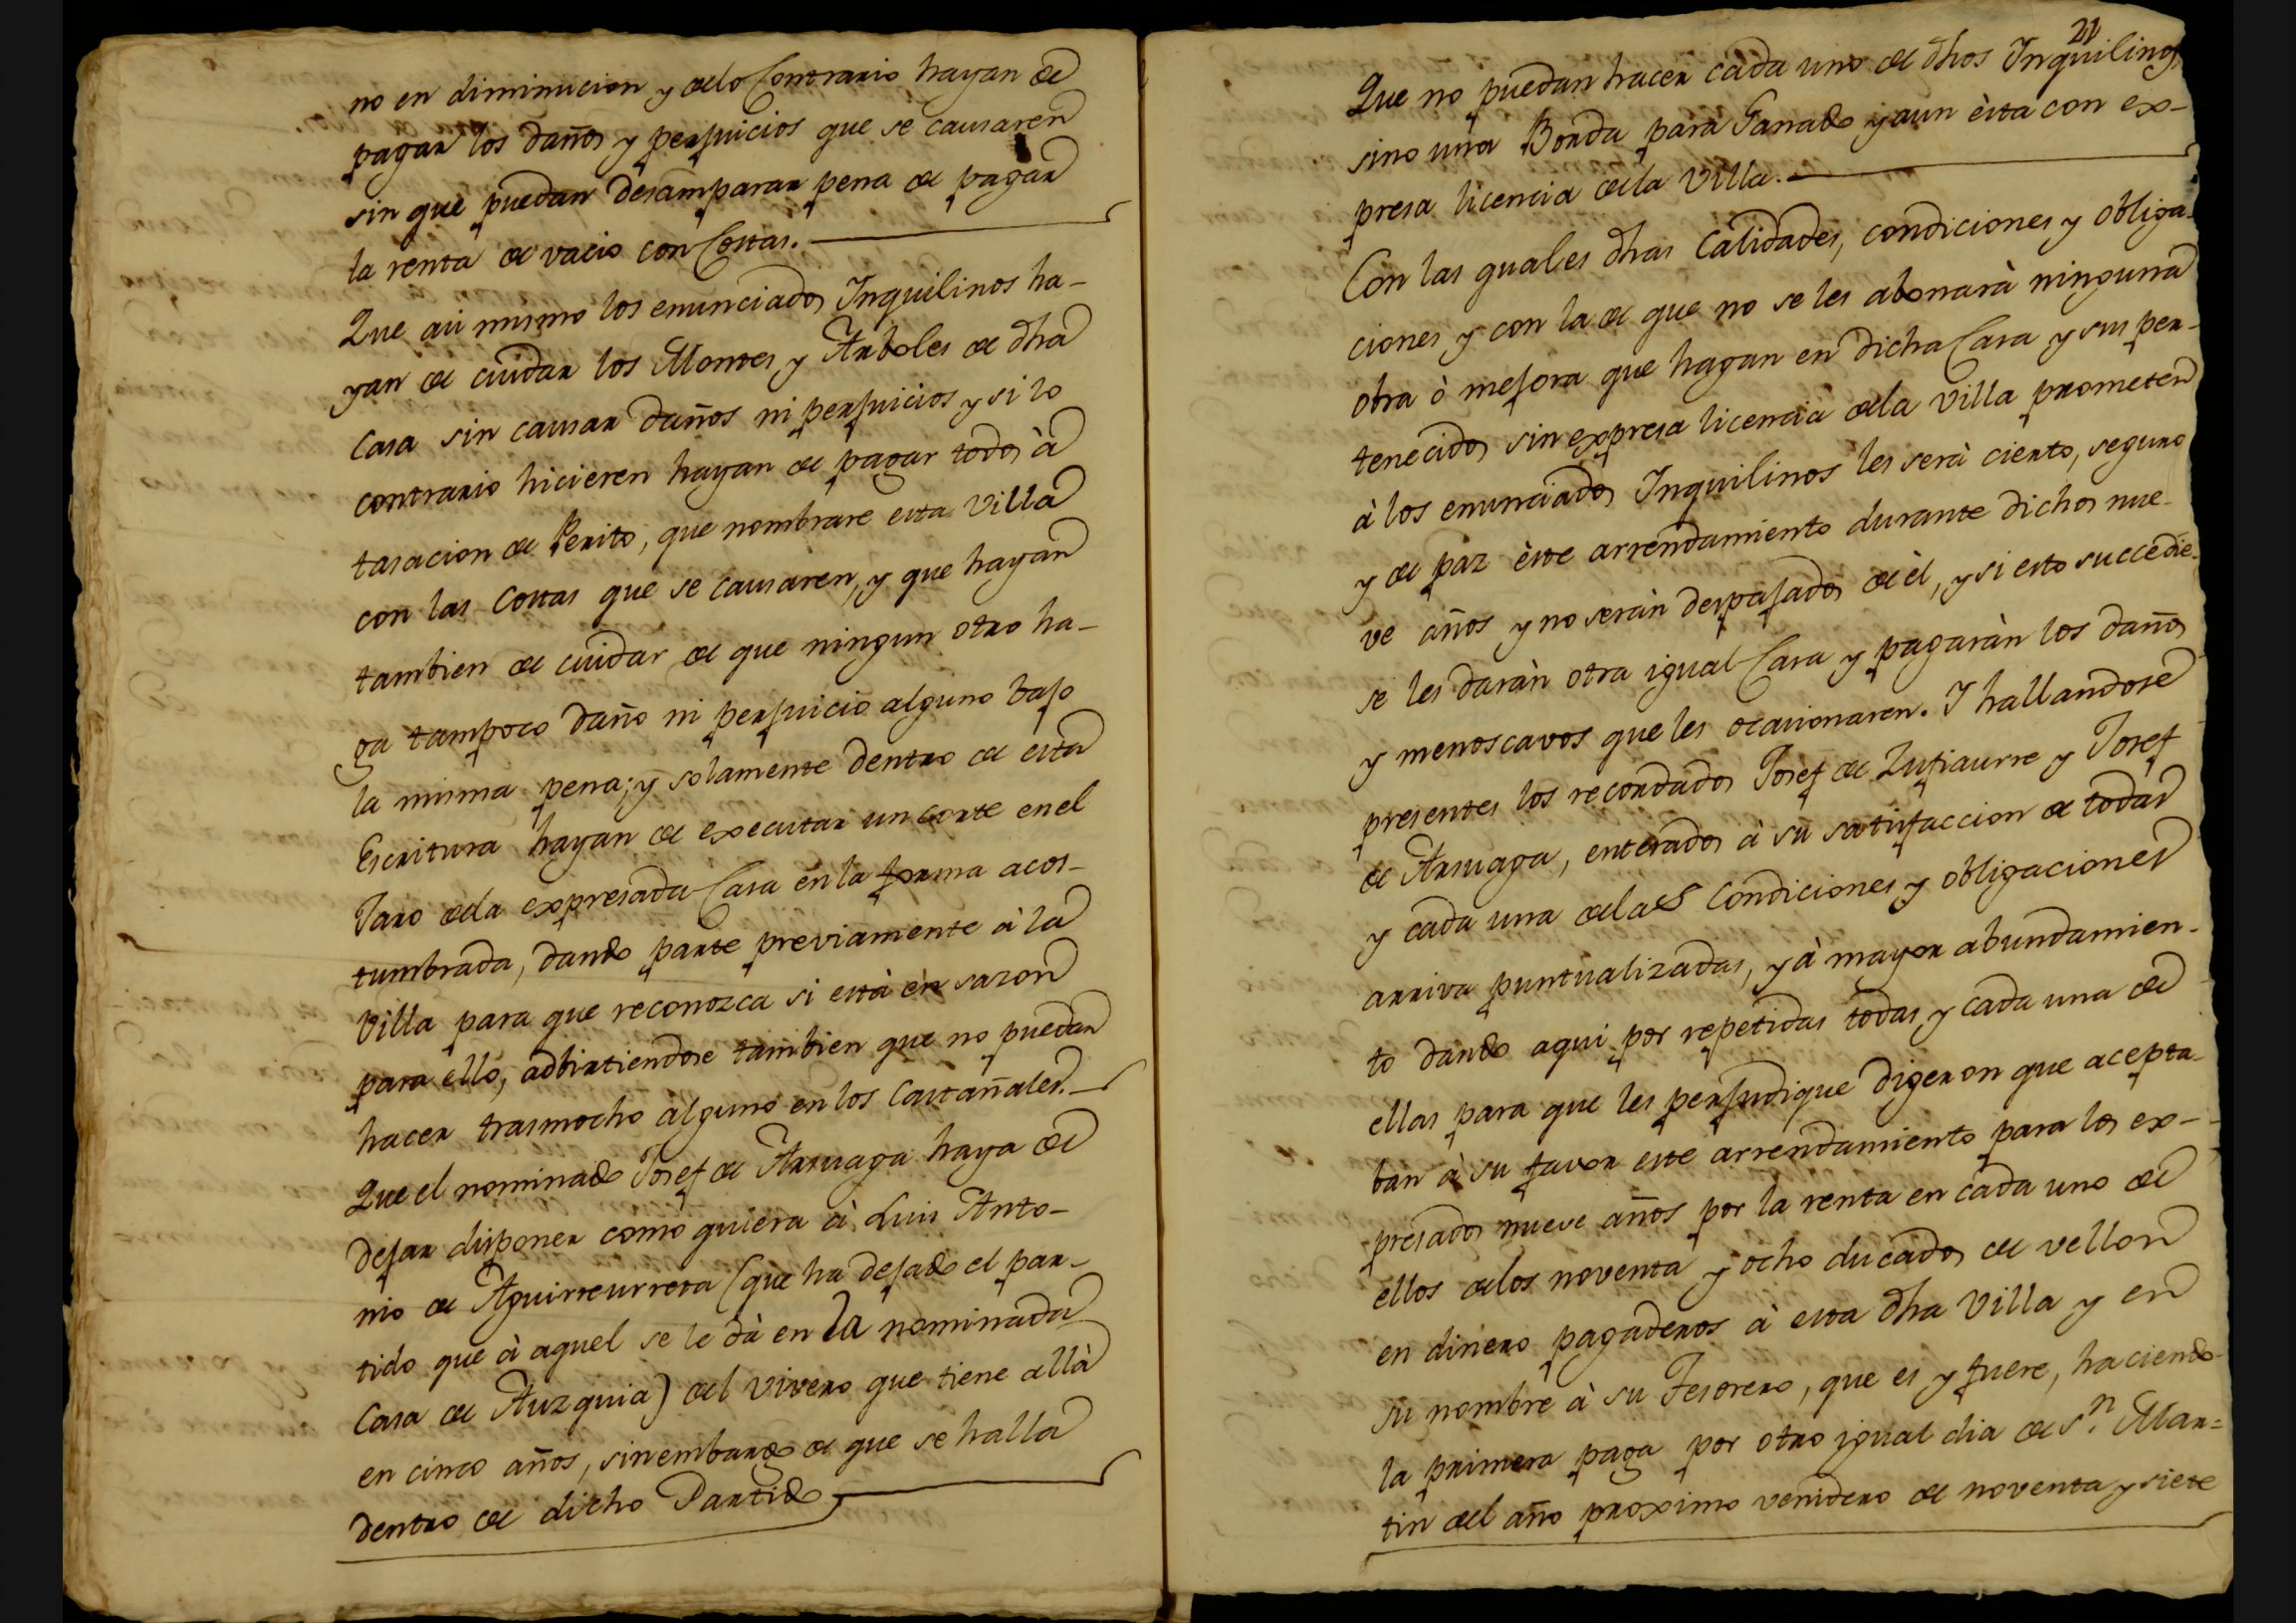 no en diminucion y de lo Contrario hayan de
pagar los daños y perjuicios que se causaren
sin que puedan desamparar pena de pagar
la renta de vacio con Costas.
Que asi mismo los enunciados Inquilinos ha-
yan de cuidar los Montes y Arboles de dha
Casa sin causar daños ni perjuicios y si lo
contrario hicieren hayan de pagar todos à
tasacion de Perito, que nombrare esta Villa
con las Costas que se causaren, y que hayan
tambien de cuidar de que ningun otro ha-
ga tampoco daño ni perjuicio alguno bajo
la misma pena; y solamente dentro de esta
Escritura hayan de executar un corte en el
Jaro de la expresada Casa en la forma acos-
tumbrada, dando parte previamente à la
Villa para que reconozca si està en sazon
para ello, adbirtiendose tambien que no puedan
hacer trasmocho alguno en los Castañales.
Que el nominado Josef de Arruaga haya de
dejar disponer como quiera à Luis Anto-
nio de Aguirreurreta (que ha dejado el par-
tido que à aquel se le dà en la nominada
Casa de Auzquia) del vivero que tiene allà
en cinco años, sin embargo de que se halla
dentro de dicho Partido,
21
Que no puedan hacer cada uno de dhos Inquilinos
sino una Borda para Ganado y aun èsta con ex-
presa licencia de la Villa.
Con las quales dhas Calidades, condiciones y obliga-
ciones y con la de que no se les abonarà ninguna
obra ò mejora que hagan en dicha Casa y sus per-
tenecidos sin expresa licencia de la Villa prometen
à los enunciados Inquilinos les serà cierto, seguro
y de paz èste arrendamiento durante dichos nue-
ve años y no seràn despajados de èl, y si esto succedie-
se les daràn otra igual Casa y pagaràn los daños
y menoscavos que les ocasionaren. Y hallandose
presentes los recordados Josef de Zufiaurre y Josef
de Arruaga, enterados à su satisfaccion de todas
y cada una de las Condiciones y obligaciones
arriva puntualizadas, y à mayor abundamien-
to dando aqui por repetidas todas y cada una de
ellas para que les perjudique digeron que acepta-
ban à su favor este arrendamiento para los ex-
presados nueve años por la renta en cada uno de
ellos de los noventa y ocho ducados de vellon
en dinero pagaderos à esta dha Villa y en
su nombre à su Tesorero, que es y fuere, haciendo
la primera paga por otro igual dia de Sn. Mar=
tin del año proximo venidero de noventa y siete